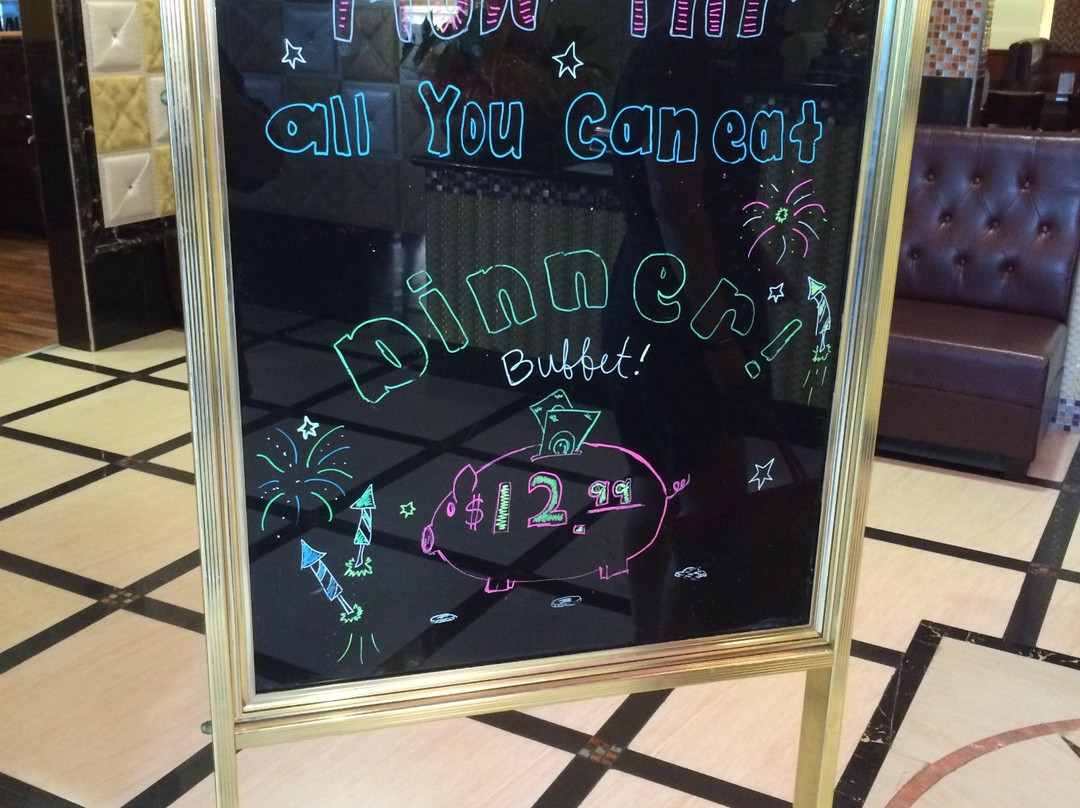 all You Can eat
Dinner!
Buffet!
$12.99